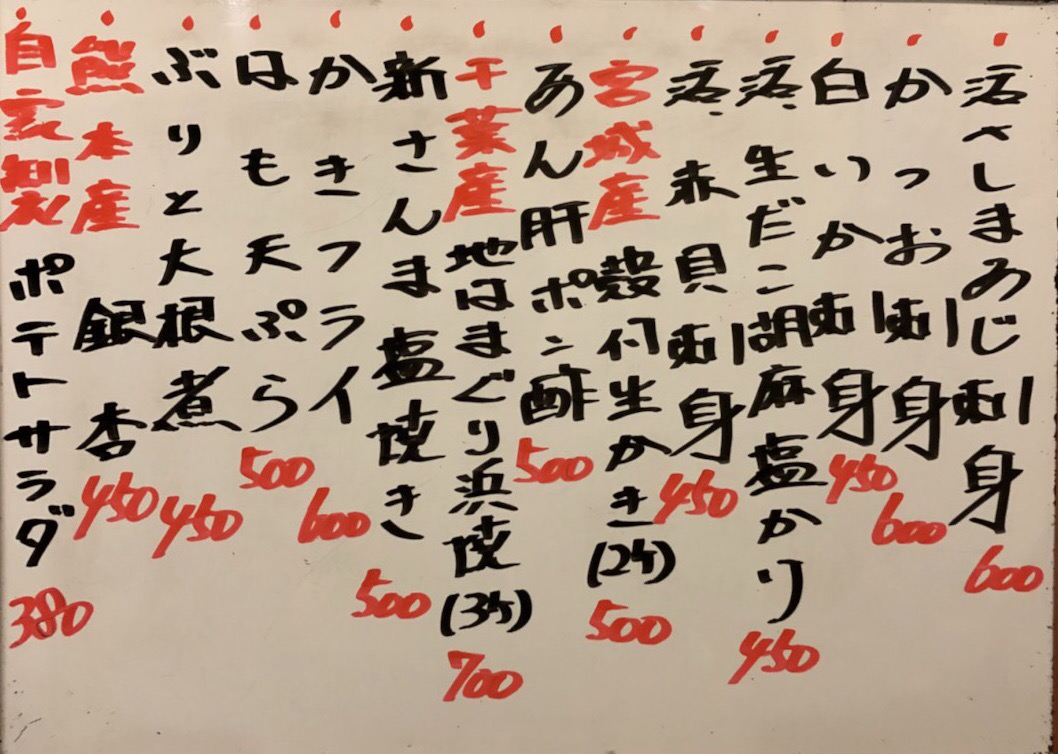 活〆しまあじ刺身 600
かつお刺身 600
白いか刺身 450
活、生だこ胡麻塩かり 450
活、赤貝刺身 450
宮城産 殻付生かき(2ケ) 500
あん肝ポン酢 500
千葉産 地はまぐり浜焼(3ケ) 700
新さんま塩焼き 500
かきフライ 600
はも天ぷら 500
ぶりと大根煮 450
熊本産 銀杏 450
自家製 ポテトサラダ 380